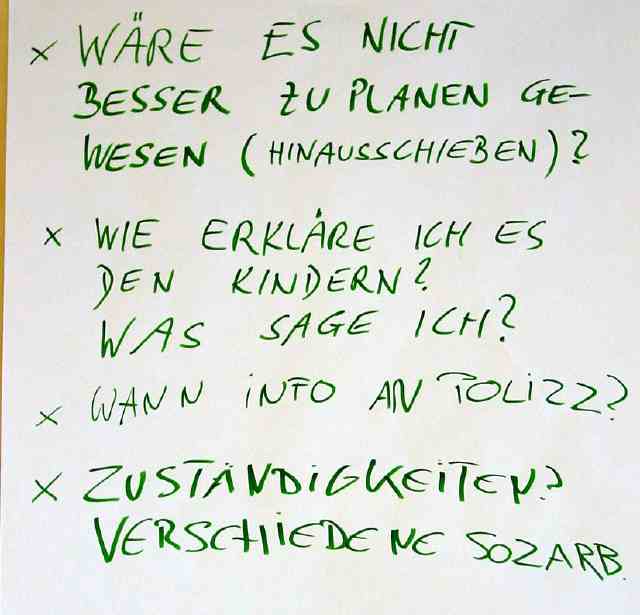 x WÄRE ES NICHT
BESSER ZU PLANEN GE-
WESEN (HINAUSSCHIEBEN)?
x WIE ERKLÄRE ICH ES
DEN KINDERN?
WAS SAGE ICH?
x WANN INFO AN POLIZZ?
x ZUSTÄNDIGKEITEN?
VERSCHIEDENE SOZARB.